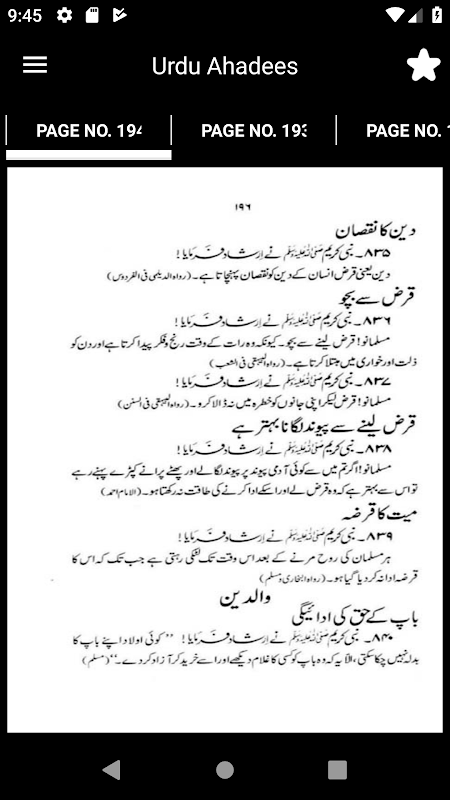 9:45
Urdu Ahadees
PAGE NO. 194 PAGE NO. 193 PAGE NO. 1
۱۹۶
دین کا نقصان
۸۳۵۔ نبی کریم صَلَّى اللهُ عَلَيْهِ وَسَلَّمَ نے اِرشاد فَرمَایا !
دین یعنی قرض انسان کے دین کو نقصان پہنچاتا ہے۔ (رواہ الدیلمی فی الفردوس)
قرض سے بچو
۸۳۶۔ نبی کریم صَلَّى اللهُ عَلَيْهِ وَسَلَّمَ نے اِرشاد فَرمَایا !
مسلمانو! قرض لینے سے بچو۔ کیونکہ وہ رات کے وقت رنج وفکر پیدا کرتا ہے اور دن کو
ذلت اور خواری میں مبتلا کرتا ہے۔ (رواہ البیہقی فی الشعب)
۸۳۷۔ نبی کریم صَلَّى اللهُ عَلَيْهِ وَسَلَّمَ نے اِرشاد فَرمَایا !
مسلمانو! قرض لیکر اپنی جانوں کو خطرہ میں نہ ڈالا کرو۔ (رواہ البیہقی فی السنن)
قرض لینے سے پیوند لگانا بہتر ہے
۸۳۸۔ نبی کریم صَلَّى اللهُ عَلَيْهِ وَسَلَّمَ نے اِرشاد فَرمَایا !
مسلمانو! اگر تم میں سے کوئی آدمی پیوند پر پیوند لگا لے اور پھٹے پرانے کپڑے پہنے رہے
تو اس سے بہتر ہے کہ وہ قرض لے اور اسکے ادا کرنے کی طاقت نہ رکھتا ہو۔ (الامام احمد)
میت کا قرضہ
۸۳۹۔ نبی کریم صَلَّى اللهُ عَلَيْهِ وَسَلَّمَ نے اِرشاد فَرمَایا !
ہر مسلمان کی روح مرنے کے بعد اس وقت تک لٹکی رہتی ہے جب تک کہ اس کا
قرضہ ادا نہ کر دیا گیا ہو۔ (رواہ البخاری ومسلم)
والدین
باپ کے حق کی ادائیگی
۸۴۰۔ نبی کریم صَلَّى اللهُ عَلَيْهِ وَسَلَّمَ نے اِرشاد فَرمَایا ! ”کوئی اولاد اپنے باپ کا
بدلہ نہیں چکا سکتی، الاّ یہ کہ وہ باپ کو کسی کا غلام دیکھے اور اسے خرید کر آزاد کر دے۔“ (مسلم)